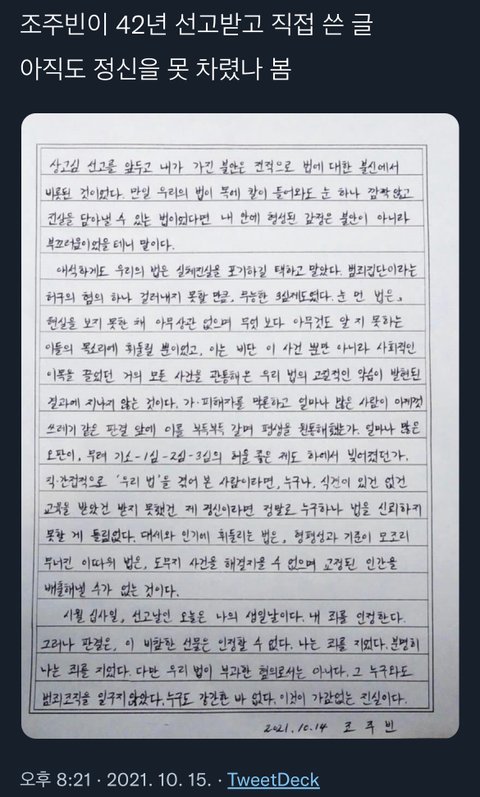 조주빈이 42년 선고받고 직접 쓴 글
아직도 정신을 못 차렸나 봄
상고심 선고를 앞두고 내가 가진 불안은 전적으로 법에 대한 불신에서
비롯된 것이었다. 만일 우리의 법이 목에 칼이 들어와도 눈 하나 깜짝 않고
진실을 담아낼 수 있는 법이었다면 내 안에 형성된 감정은 불안이 아니라
부끄러움이었을 테니 말이다.
애석하게도 우리의 법은 실체진실을 포기하길 택하고 말았다. 범죄집단이라는
허구의 혐의 하나 걸러내지 못할 만큼, 무능한 3심제도였다. 눈 먼 법은,
현실을 보지 못한 채 아무상관 없으며 무엇 보다 아무것도 알 지 못하는
이들의 목소리에 휘둘릴 뿐이었고, 이는 비단 이 사건 뿐만 아니라 사회적인
이목을 끌었던 거의 모든 사건을 관통해온 우리 법의 고질적인 악습이 발현된
결과에 지나지 않는 것이다. 가·피해자를 막론하고 얼마나 많은 사람이 여태껏
쓰레기 같은 판결 앞에 이를 부득부득 갈며 평생을 원통해했던가. 얼마나 많은
오판이, 무려 기소-1심-2심-3심의 허울 좋은 제도 하에서 빚어졌던가.
직·간접적으로 '우리 법'을 겪어 본 사람이라면, 누구나, 식견이 있건 없건
교육을 받았건 받지 못했건 제 정신이라면 정말로 누구하나 법을 신뢰하지
못할 게 틀림없다. 대세와 인기에 휘둘리는 법은, 형평성과 기준이 모조리
무너진 이따위 법은, 도무지 사건을 해결지을 수 없으며 교정된 인간을
배출해낼 수가 없는 것이다.
시월 십사일, 선고날인 오늘은 나의 생일날이다. 내 죄를 인정한다.
그러나 판결은, 이 비참한 선물은 인정할 수 없다. 나는 죄를 지었다. 분명히
나는 죄를 지었다. 다만 우리 법이 부과한 혐의로서는 아니다. 그 누구와도
범죄조직을 일구지 않았다. 누구도 강간한 바 없다. 이것이 가감없는 진실이다.
2021. 10. 14 조 주 빈
오후 8:21 · 2021. 10. 15. · TweetDeck